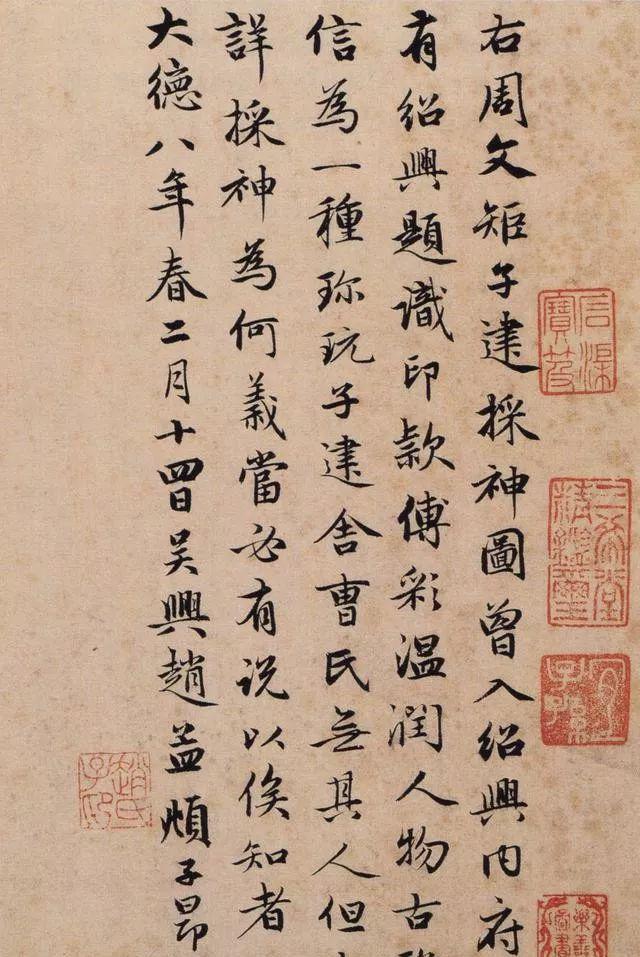 右周文矩子建採神圖曾入紹興内府
有紹興題識印款傅彩温潤人物古
信為一種珎玩子建舎曹氏無其人但
詳採神為何義當必有説以俟知者
大德八年春二月十四日吴興趙孟頫子昂
信渠寶笈
趙氏子印